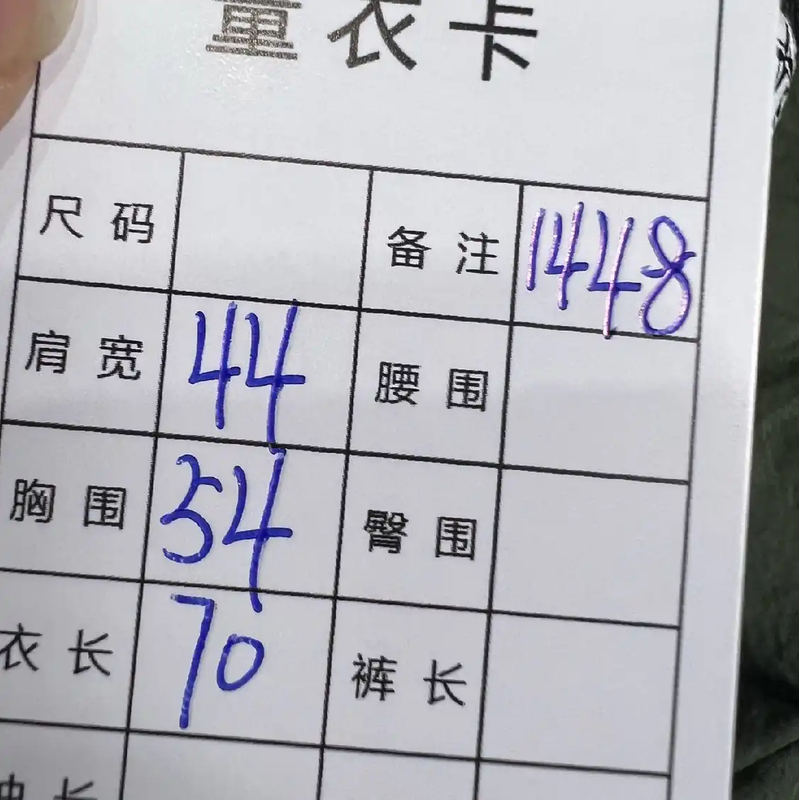 量衣卡
尺码 备注 1448
肩宽 44 腰围
胸围 54 臀围
衣长 70 裤长
长